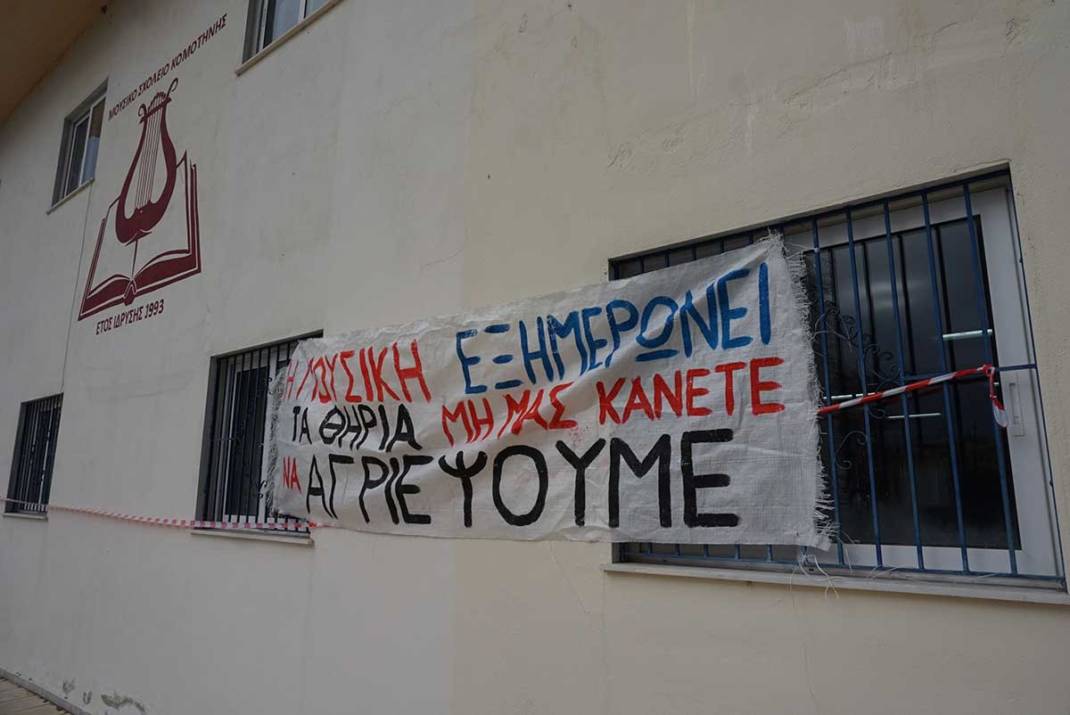 ΜΟΥΣΙΚΟ ΣΧΟΛΕΙΟ ΚΟΜΟΤΗΝΗΣ
ΕΤΟΣ ΙΔΡΥΣΗΣ 1993
Η ΜΟΥΣΙΚΗ ΕΞΗΜΕΡΩΝΕΙ
ΤΑ ΘΗΡΙΑ ΜΗ ΜΑΣ ΚΑΝΕΤΕ
ΝΑ ΑΓΡΙΕΨΟΥΜΕ